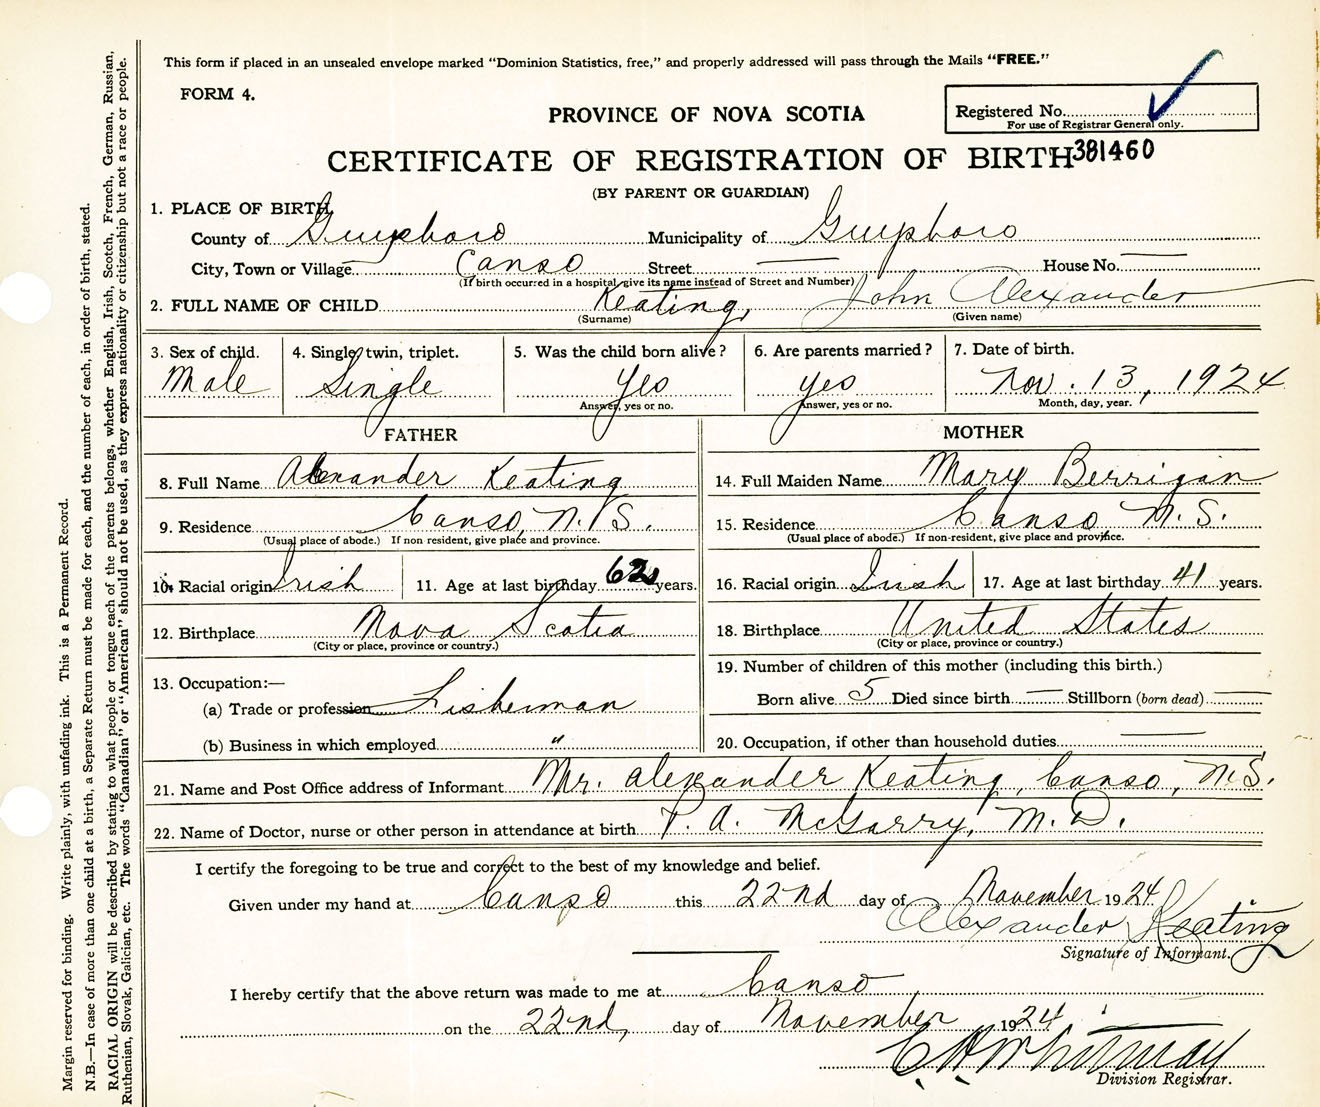 This form if placed in an unsealed envelope marked "Dominion Statistics, free," and properly addressed will pass through the Mails "FREE."
FORM 4.
PROVINCE OF NOVA SCOTIA
Registered No.
For use of Registrar General only.
CERTIFICATE OF REGISTRATION OF BIRTH 381460
(BY PARENT OR GUARDIAN)
1. PLACE OF BIRTH
County of Guysboro Municipality of Guysboro
City, Town or Village Canso Street — House No. —
(If birth occurred in a hospital give its name instead of Street and Number)
2. FULL NAME OF CHILD Keating, John Alexander
(Surname) (Given name)
3. Sex of child. 4. Single, twin, triplet. 5. Was the child born alive? 6. Are parents married? 7. Date of birth.
Male Single Yes Yes Nov. 13, 1924
Answer, yes or no. Answer, yes or no. Month, day, year.
FATHER
8. Full Name Alexander Keating
9. Residence Canso, N.S.
(Usual place of abode.) If non resident, give place and province.
10. Racial origin Irish 11. Age at last birthday 62 years.
12. Birthplace Nova Scotia
(City or place, province or country.)
13. Occupation:—
(a) Trade or profession Fisherman
(b) Business in which employed "
MOTHER
14. Full Maiden Name Mary Berrigan
15. Residence Canso N.S.
(Usual place of abode.) If non-resident, give place and province.
16. Racial origin Irish 17. Age at last birthday 41 years.
18. Birthplace United States
(City or place, province or country.)
19. Number of children of this mother (including this birth.)
Born alive 5 Died since birth — Stillborn (born dead) —
20. Occupation, if other than household duties —
21. Name and Post Office address of Informant Mr. Alexander Keating, Canso, N.S.
22. Name of Doctor, nurse or other person in attendance at birth P. A. McGarry, M.D.
I certify the foregoing to be true and correct to the best of my knowledge and belief.
Given under my hand at Canso this 22nd day of November 1924
Alexander Keating
Signature of Informant.
I hereby certify that the above return was made to me at Canso
on the 22nd, day of November 1924
C. H. Whitman
Division Registrar.
Margin reserved for binding. Write plainly, with unfading ink. This is a Permanent Record.
N.B.—In case of more than one child at a birth, a Separate Return must be made for each, and the number of each, in order of birth, stated.
RACIAL ORIGIN will be described by stating to what people or tongue each of the parents belongs, whether English, Irish, Scotch, French, German, Russian,
Ruthenian, Slovak, Galician, etc. The words "Canadian" or "American" should not be used, as they express nationality or citizenship but not a race or people.